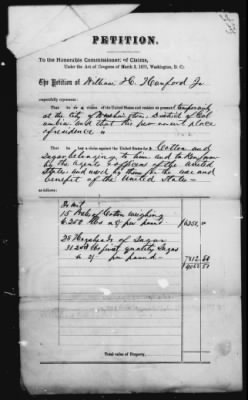 PETITION.
To the Honorable Commissioners of Claims,
Under the Act of Congress of March 3, 1871, Washington, D. C.
The Petition of William H. Hanford Jr
respectfully represents:
That he is a citizen of the United States and resides at present temporarily
at the City of Washington, District of Col
umbia and that his permanent place
of residence is
That he has a claim against the United States for Cotton and
Sugar belonging to him and taken
by the agents & officers of the United
States, and used by them for the use and
benefit of the United States
as follows:
To wit
15 Bales of Cotton weighing
6.250 lbs a $ per pound
25 Hogsheads of Sugar
31.250 lbs first quality Sugar
a per pound
7812.50
Total value of Property,